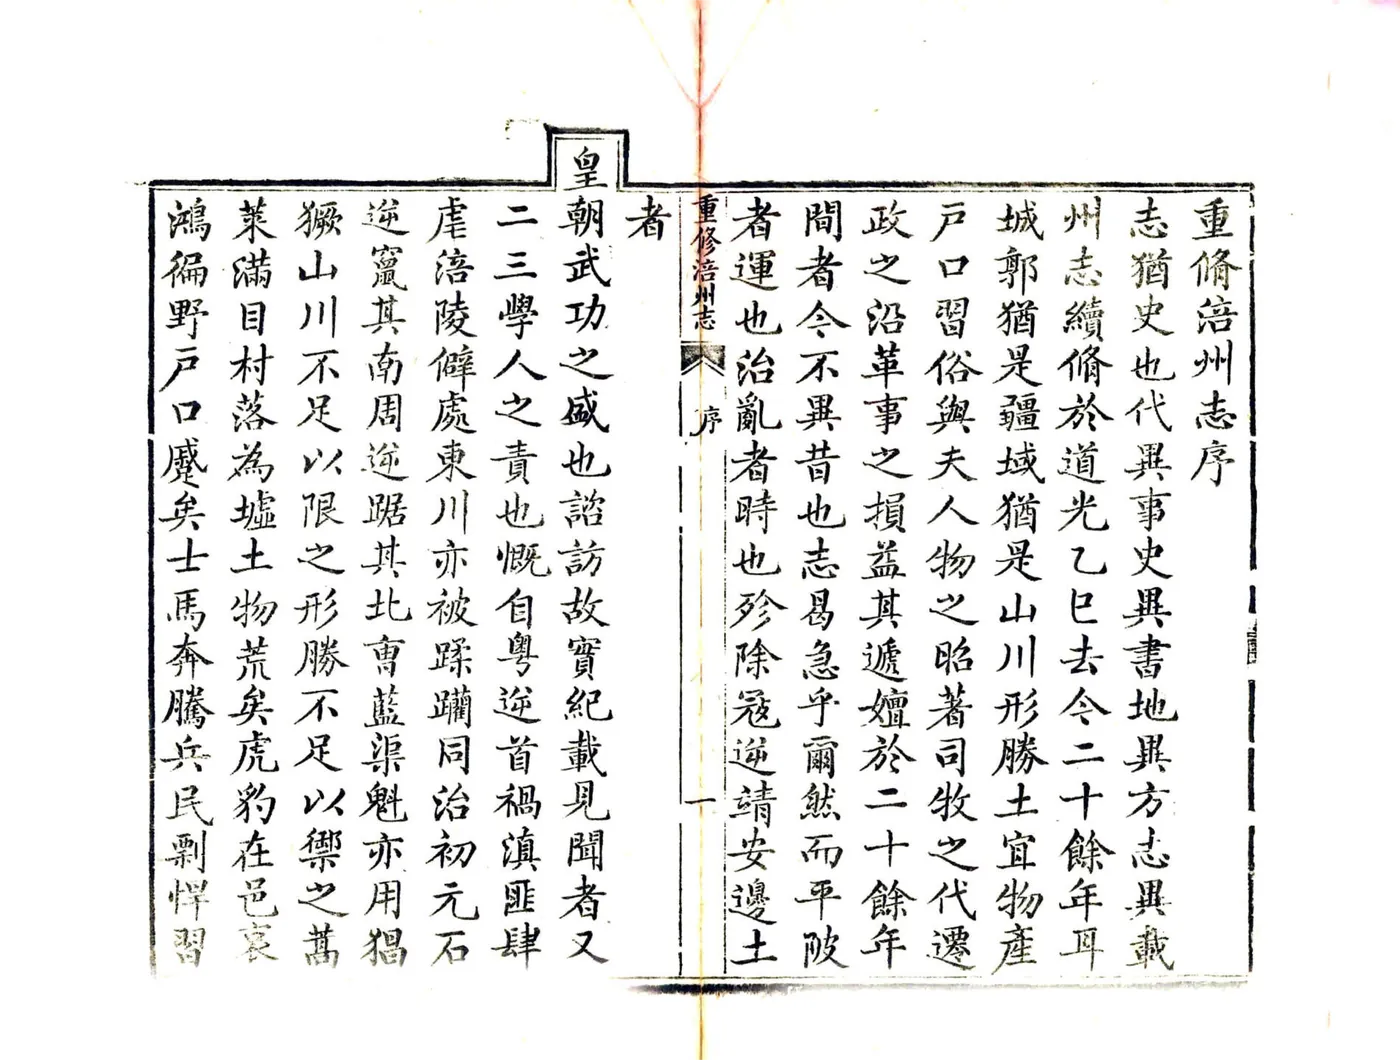 重脩涪州志序
志猶史也代異事史異書地異方志異載
州志續脩於道光乙巳去今二十餘年耳
城郭猶是疆域猶是山川形勝土宜物產
戶口習俗與夫人物之昭著司牧之代遷
政之沿革事之損益其遞嬗於二十餘年
間者今不異昔也志曷急乎爾然而平陂
者運也治亂者時也殄除寇逆靖安邊土
重修涪州志
序
一
者
皇朝武功之盛也諮訪故實紀載見聞者又
二三學人之責也慨自粵逆首禍滇匪肆
虐涪陵僻處東川亦被蹂躪同治初元石
逆竄其南周逆踞其北曹藍渠魁亦用猖
獗山川不足以限之形勝不足以禦之蒿
萊滿目村落為墟土物荒矣虎豹在邑哀
鴻徧野戶口蹙矣士馬奔騰兵民剽悍習